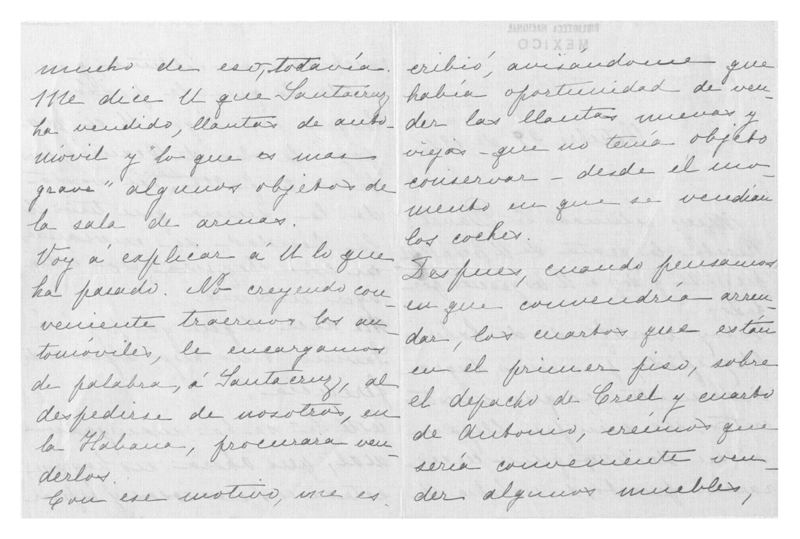 mucho de eso, todavía.
Me dice U que Santacruz
ha vendido, llantas de auto-
móvil y "lo que es mas
grave" algunos objetos de
la sala de armas.
Voy á explicar á U lo que
ha pasado. No creyendo con-
veniente traernos los au-
tomóviles, le encargamos
de palabra, á Santacruz, al
despedirse de nosotros, en
la Habana, procurara ven-
derlos.
Con ese motivo, me es-
cribió, avisándome que
había oportunidad de ven-
der las llantas nuevas y
viejas - que no tenía objeto
conservar - desde el mo-
mento en que se vendían
los coches.
Despues, cuando pensamos
en que convendría arren-
dar, los cuartos que están
en el primer piso, sobre
el depacho de Creel y cuarto
de Antonio, creímos que
sería conveniente ven-
der algunos muebles,
BIBLIOTECA NACIONAL
MEXICO